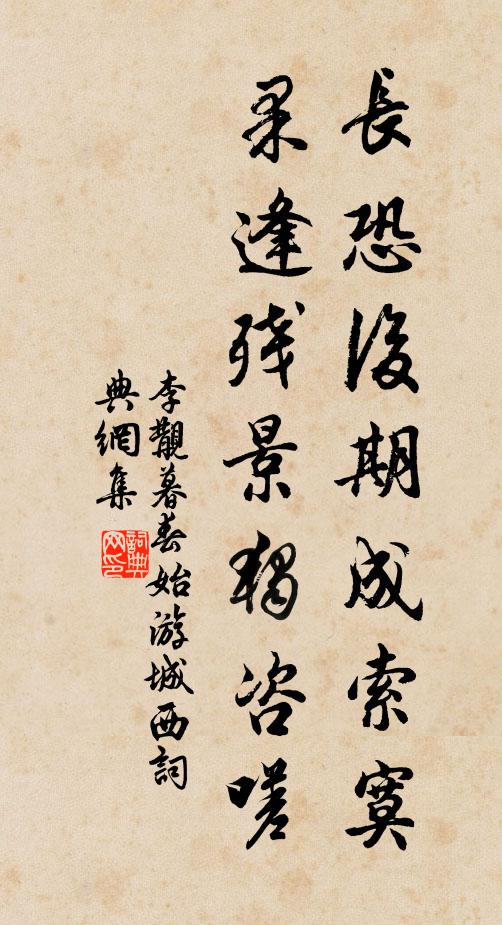 長恐後期成索寞
果逢殘景獨咨嗟
李觀暮春始游城西詞
典網集
詞典
网印